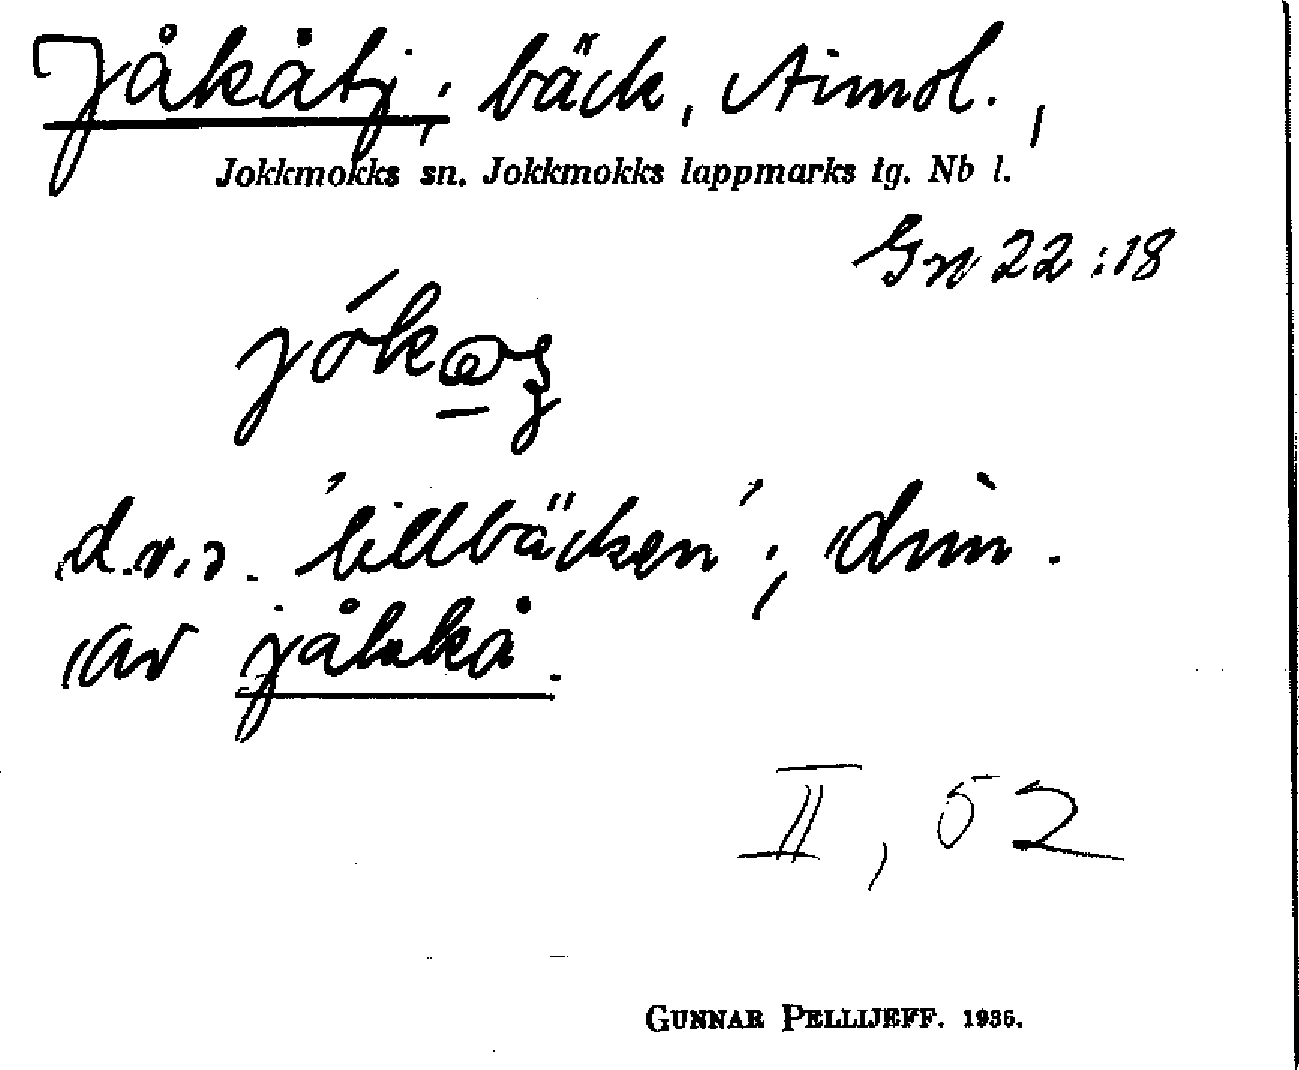 Jåkåtj; bäck, Aimol.,
Jokkmokks sn. Jokkmokks lappmarks tg. Nb l.
Gn 22:18
d.v.s. 'lillbäcken'; dim.
av jåkkå.
II, 52
GUNNAR PELLIJEFF. 1936.